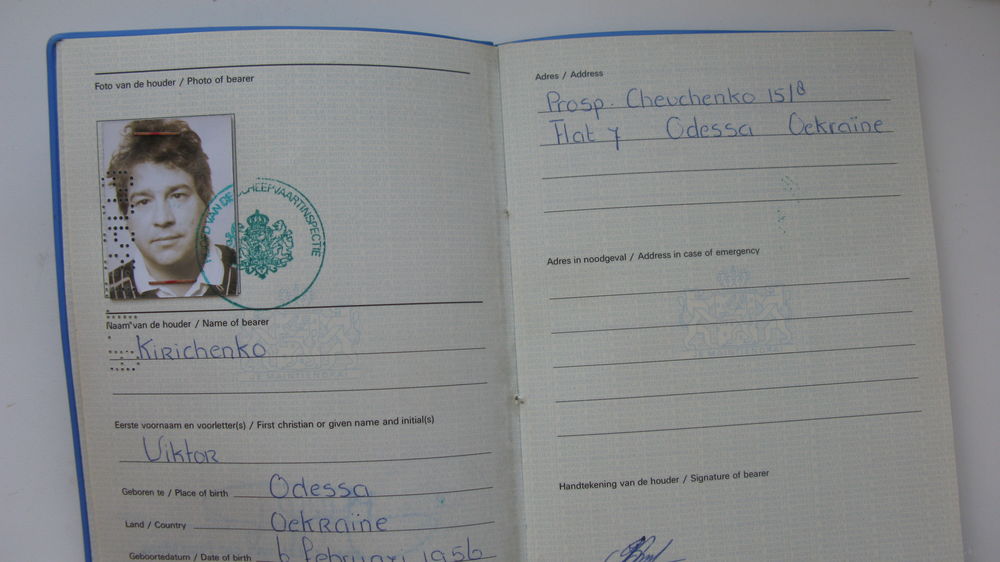 Foto van de houder / Photo of bearer
VAN DE SCHEEPVAARTINSPECTIE
Naam van de houder / Name of bearer
Kirichenko
JE MAINTIENDRAI
Eerste voornaam en voorletter(s) / First christian or given name and initial(s)
Viktor
Geboren te / Place of birth Odessa
Land / Country Oekraïne
Geboortedatum / Date of birth 6 februari 1956
Adres / Address
Prosp. Chevchenko 15/8
Flat 7 Odessa Oekraïne
Adres in noodgeval / Address in case of emergency
JE MAINTIENDRAI
Handtekening van de houder / Signature of bearer